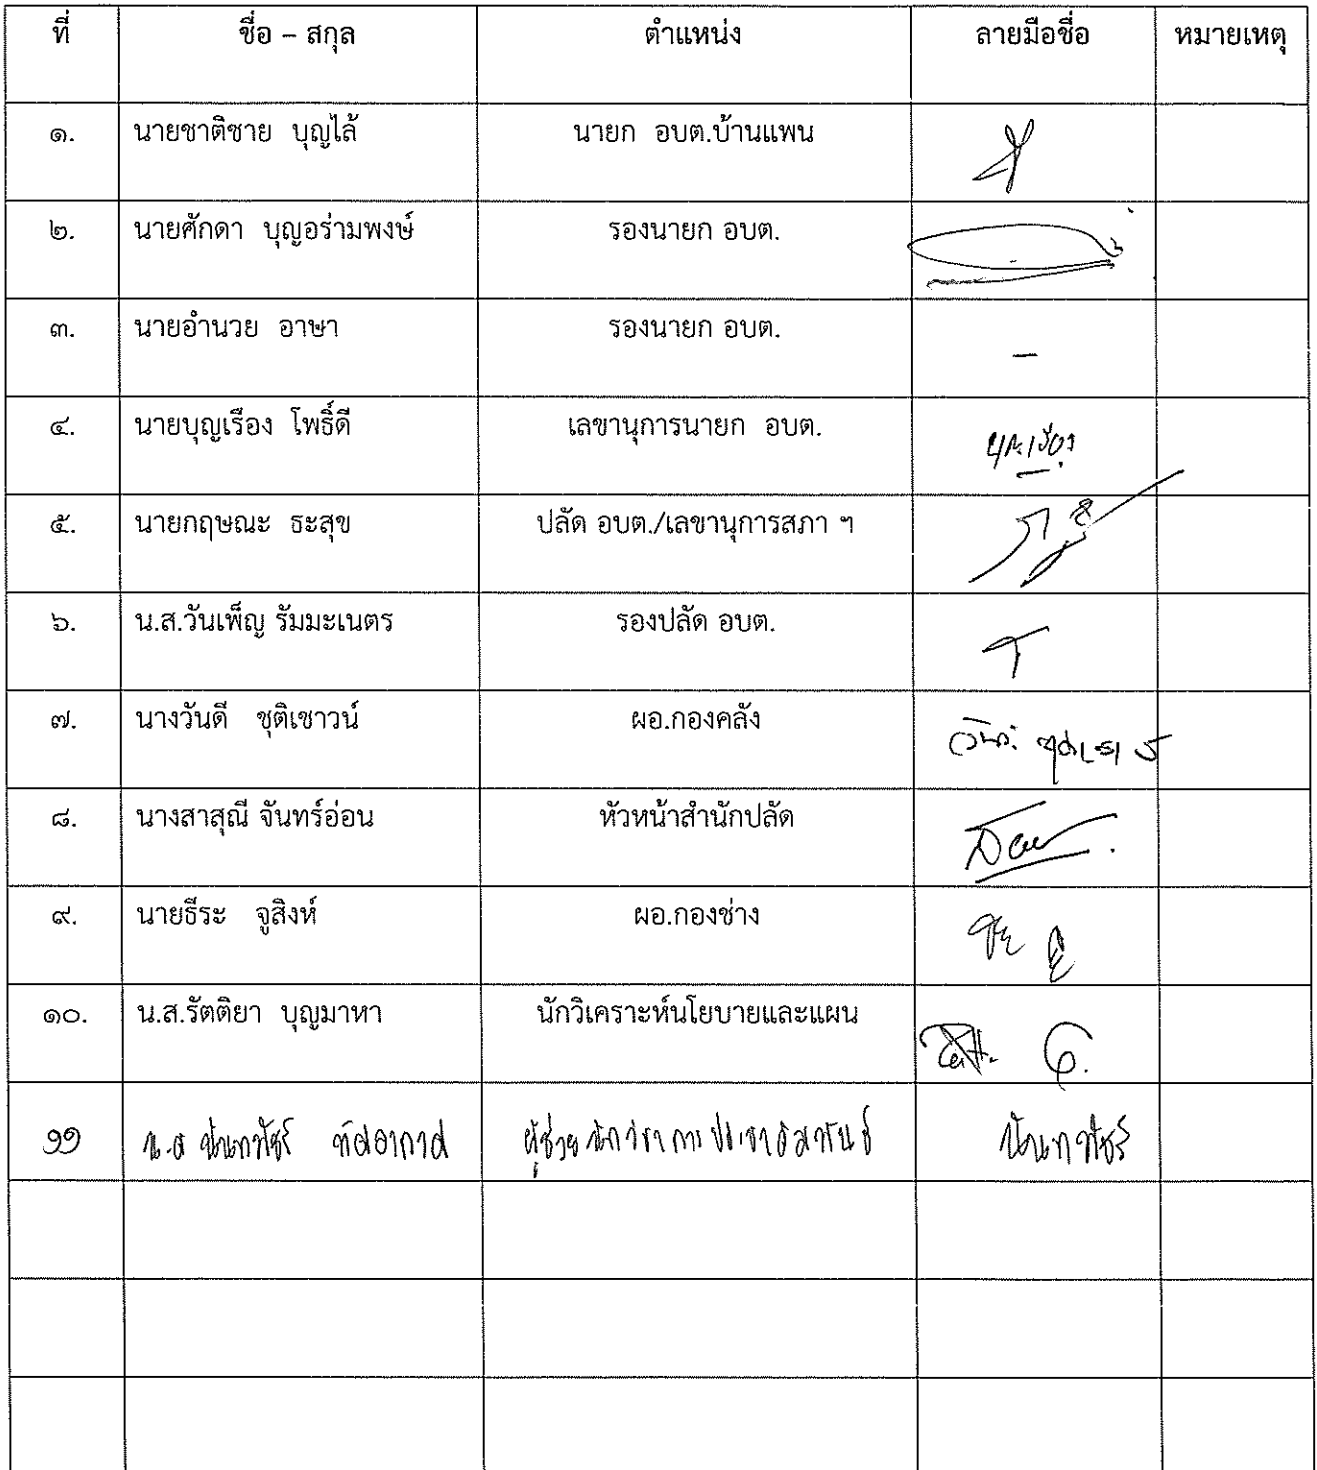 ที่ ชื่อ – สกุล ตำแหน่ง ลายมือชื่อ หมายเหตุ
๑. นายชาติชาย บุญไล้ นายก อบต.บ้านแพน
๒. นายศักดา บุญอร่ามพงษ์ รองนายก อบต.
๓. นายอำนวย อาษา รองนายก อบต. –
๔. นายบุญเรือง โพธิ์ดี เลขานุการนายก อบต. บุญเรือง
๕. นายกฤษณะ ธะสุข ปลัด อบต./เลขานุการสภา ฯ
๖. น.ส.วันเพ็ญ รัมมะเนตร รองปลัด อบต.
๗. นางวันดี ชุติเชาวน์ ผอ.กองคลัง
๘. นางสาสุณี จันทร์อ่อน หัวหน้าสำนักปลัด
๙. นายธีระ จูสิงห์ ผอ.กองช่าง
๑๐. น.ส.รัตติยา บุญมาหา นักวิเคราะห์นโยบายและแผน
๑๑ น.ส นันทพัชร์ ทัศอากาศ ผู้ช่วยนักวิชาการประชาสัมพันธ์ นันทพัชร์